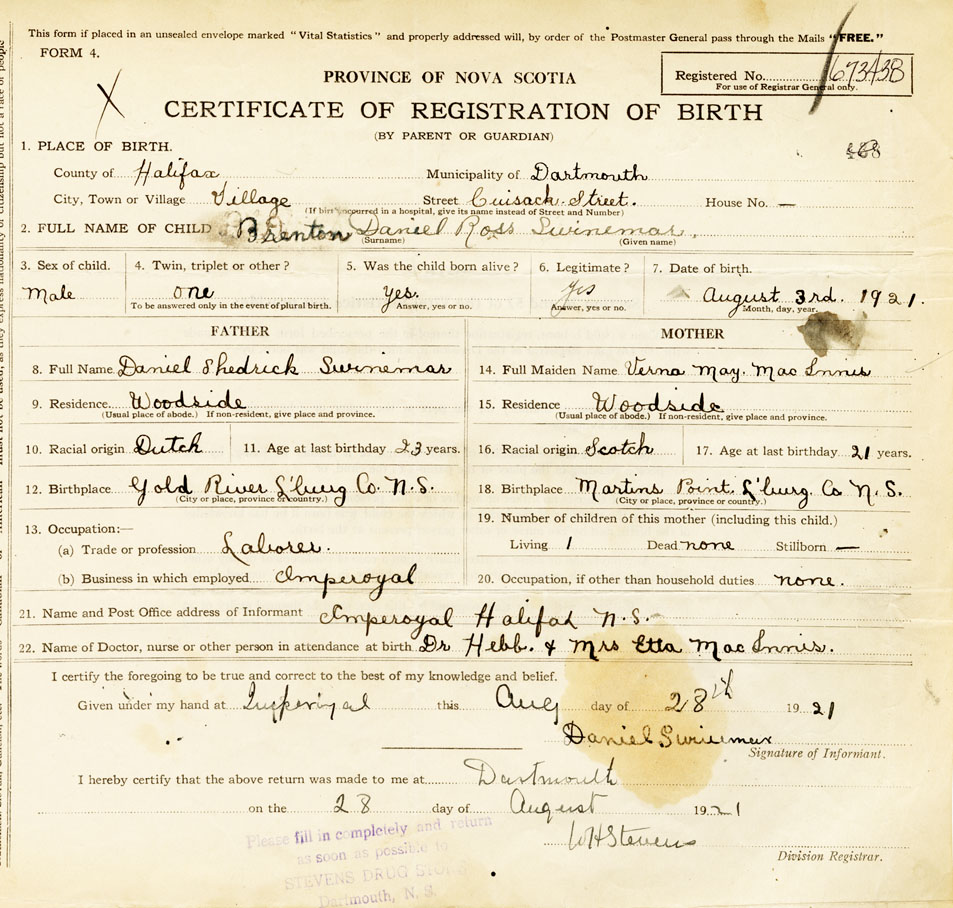 This form if placed in an unsealed envelope marked "Vital Statistics" and properly addressed will, by order of the Postmaster General pass through the Mails "FREE."
FORM 4.
PROVINCE OF NOVA SCOTIA
Registered No.
For use of Registrar General only.
CERTIFICATE OF REGISTRATION OF BIRTH
(BY PARENT OR GUARDIAN)
1. PLACE OF BIRTH.
County of Halifax Municipality of Dartmouth
City, Town or Village Village Street Cuisack Street. House No. —
(If birth occurred in a hospital, give its name instead of Street and Number)
2. FULL NAME OF CHILD Brenton Daniel Ross Swinemar
(Surname) (Given name)
3. Sex of child. 4. Twin, triplet or other? 5. Was the child born alive? 6. Legitimate? 7. Date of birth.
Male one yes. yes August 3rd. 1921.
To be answered only in the event of plural birth. Answer, yes or no. Answer, yes or no. Month, day, year.
FATHER MOTHER
8. Full Name Daniel Shedrick Swinemar 14. Full Maiden Name Verna May. Mac Innis
9. Residence Woodside 15. Residence Woodside
(Usual place of abode.) If non-resident, give place and province. (Usual place of abode.) If non-resident, give place and province.
10. Racial origin Dutch 11. Age at last birthday 23 years. 16. Racial origin Scotch 17. Age at last birthday 21 years.
12. Birthplace Gold River L'burg Co. N.S. 18. Birthplace Martins Point L'burg. Co N. S.
(City or place, province or country.) (City or place, province or country.)
13. Occupation:— 19. Number of children of this mother (including this child.)
(a) Trade or profession Laborer. Living 1 Dead none Stillborn —
(b) Business in which employed Imperoyal 20. Occupation, if other than household duties none.
21. Name and Post Office address of Informant Imperoyal Halifax N.S.
22. Name of Doctor, nurse or other person in attendance at birth Dr Hebb. & Mrs Etta Mac Innis.
I certify the foregoing to be true and correct to the best of my knowledge and belief.
Given under my hand at this Aug day of 28th 1921
Daniel Swinemar
Signature of Informant.
I hereby certify that the above return was made to me at Dartmouth
on the 28 day of August 1921
WHStevens
Division Registrar.
Please fill in completely and return
as soon as possible to
STEVENS DRUG STORE
Dartmouth, N. S.